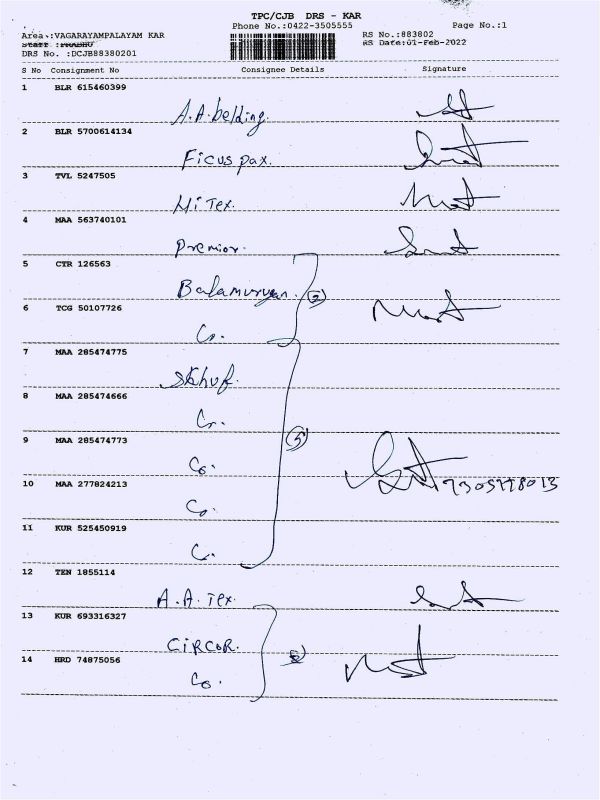 TPC/CJB DRS - KAR
Phone No.:0422-3505555
Page No.:1
Area :VAGARAYAMPALAYAM KAR
Staff :PRABHU
DRS No. :DCJB88380201
RS No.:883802
RS Date:01-Feb-2022
S No Consignment No Consignee Details Signature
1 BLR 615460399
A.A.belding.
2 BLR 5700614134
Ficus pax.
3 TVL 5247505
Hi Tex.
4 MAA 563740101
Premior.
5 CTR 126563
Balamurugan. 2
6 TCG 50107726
Co.
7 MAA 285474775
8 MAA 285474666
Co.
5
9 MAA 285474773
Co.
10 MAA 277824213
Co.
11 KUR 525450919
Co.
12 TEN 1855114
A.A. Tex.
13 KUR 693316327
CIRCOR.
2
14 HRD 74875056
Co.